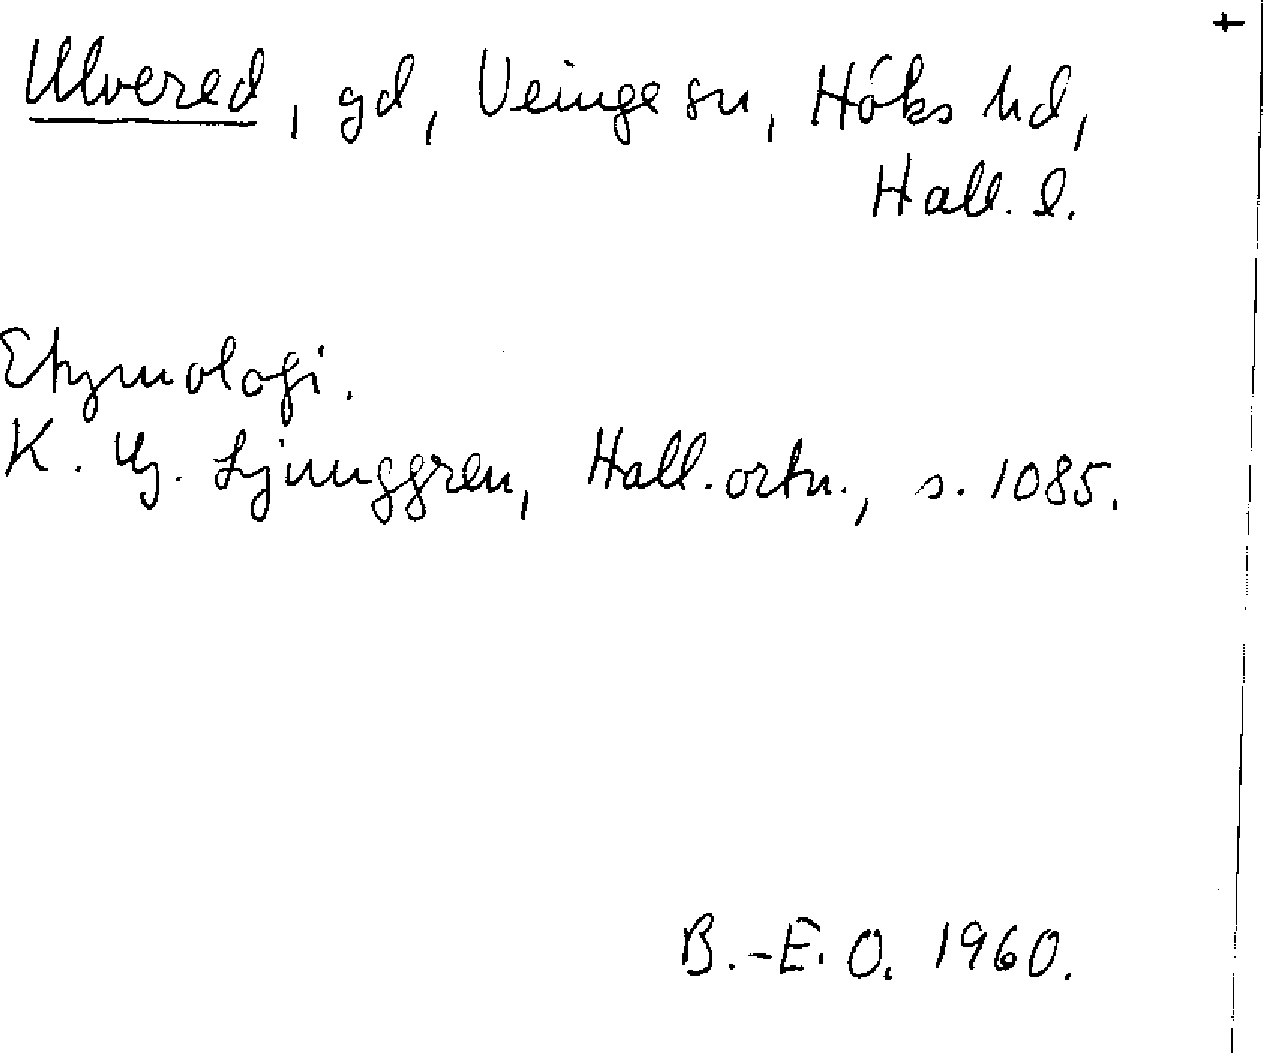 Ulvered, gd, Veinge sn, Höks hd,
Hall. l.
Etymologi.
K. G. Ljunggren, Hall. ortn., s. 1085.
B.-E. O. 1960.